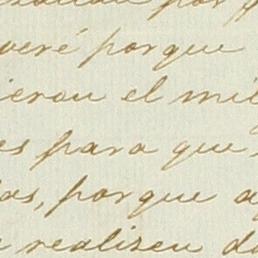 veré porque
ieron el mil
es para que
as, porque a
realisen d